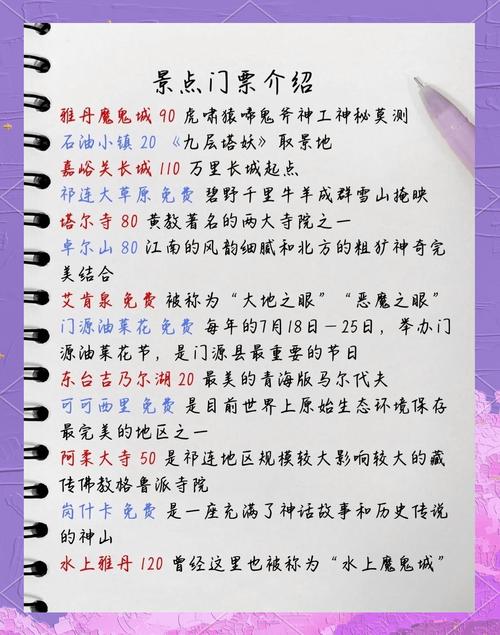 景点门票介绍
雅丹魔鬼城 90 虎啸猿啼鬼斧神工神秘莫测
石油小镇 20 《九层塔妖》取景地
嘉峪关长城 110 万里长城起点
祁连大草原 免费 碧野千里牛羊成群雪山掩映
塔尔寺 80 黄教著名的两大寺院之一
卓尔山 80 江南的风韵细腻和北方的粗犷神奇完
美结合
艾肯泉 免费 被称为“大地之眼”“恶魔之眼”
门源油菜花 免费 每年的7月18日—25日，举办门
源油菜花节，是门源县最重要的节日
东台吉乃尔湖 20 最美的青海版马尔代夫
可可西里 免费 是目前世界上原始生态环境保存
最完美的地区之一
阿柔大寺 50 是祁连地区规模较大影响较大的藏
传佛教格鲁派寺院
岗什卡 免费 是一座充满了神话故事和历史传说
的神山
水上雅丹 120 曾经这里也被称为“水上魔鬼城”